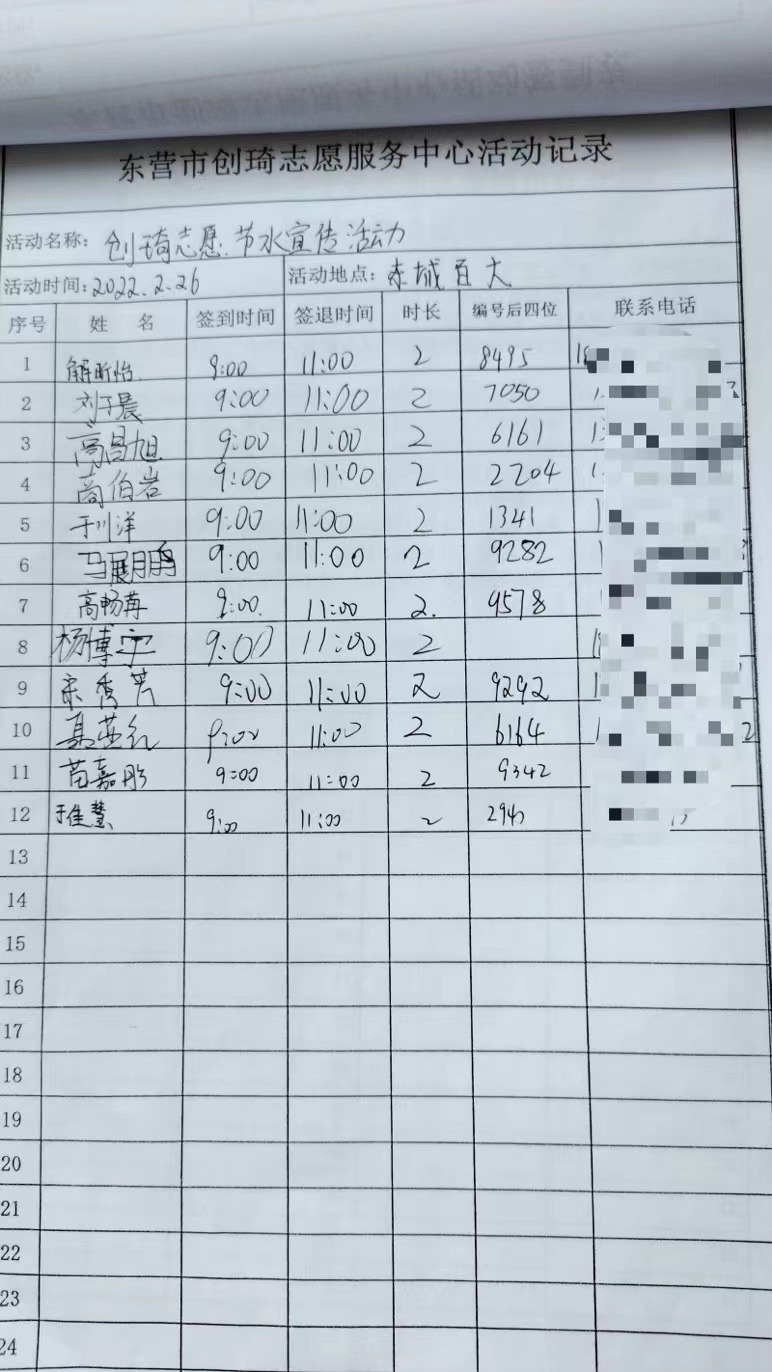 东营市创琦志愿服务中心活动记录
活动名称: 创琦志愿.节水宣传活动
活动时间: 2022.2.26 活动地点: 东城百大
序号 姓 名 签到时间 签退时间 时长 编号后四位 联系电话
1 解昕怡 9:00 11:00 2 8495
2 刘子晨 9:00 11:00 2 7050
3 高昌旭 9:00 11:00 2 6161
4 高伯岩 9:00 11:00 2 2204
5 于川洋 9:00 11:00 2 1341
6 马展鹏 9:00 11:00 2 9282
7 高畅苒 9:00 11:00 2 9578
8 杨博宇 9:00 11:00 2
9 宋秀芳 9:00 11:00 2 9292
10 9:00 11:00 2 6164 2
11 苗嘉彤 9:00 11:00 2 9342
12 9:00 11:00 2
13
14
15
16
17
18
19
20
21
22
23
24